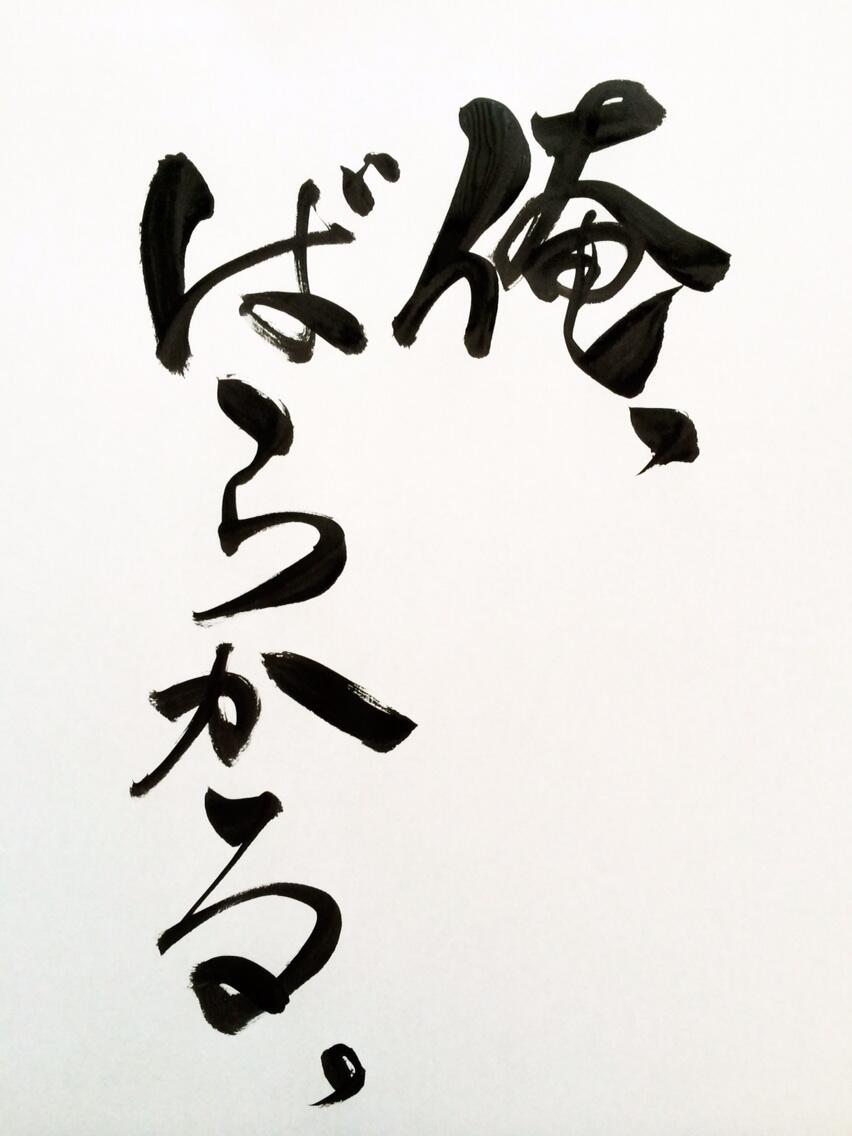 俺、
ばらかる。